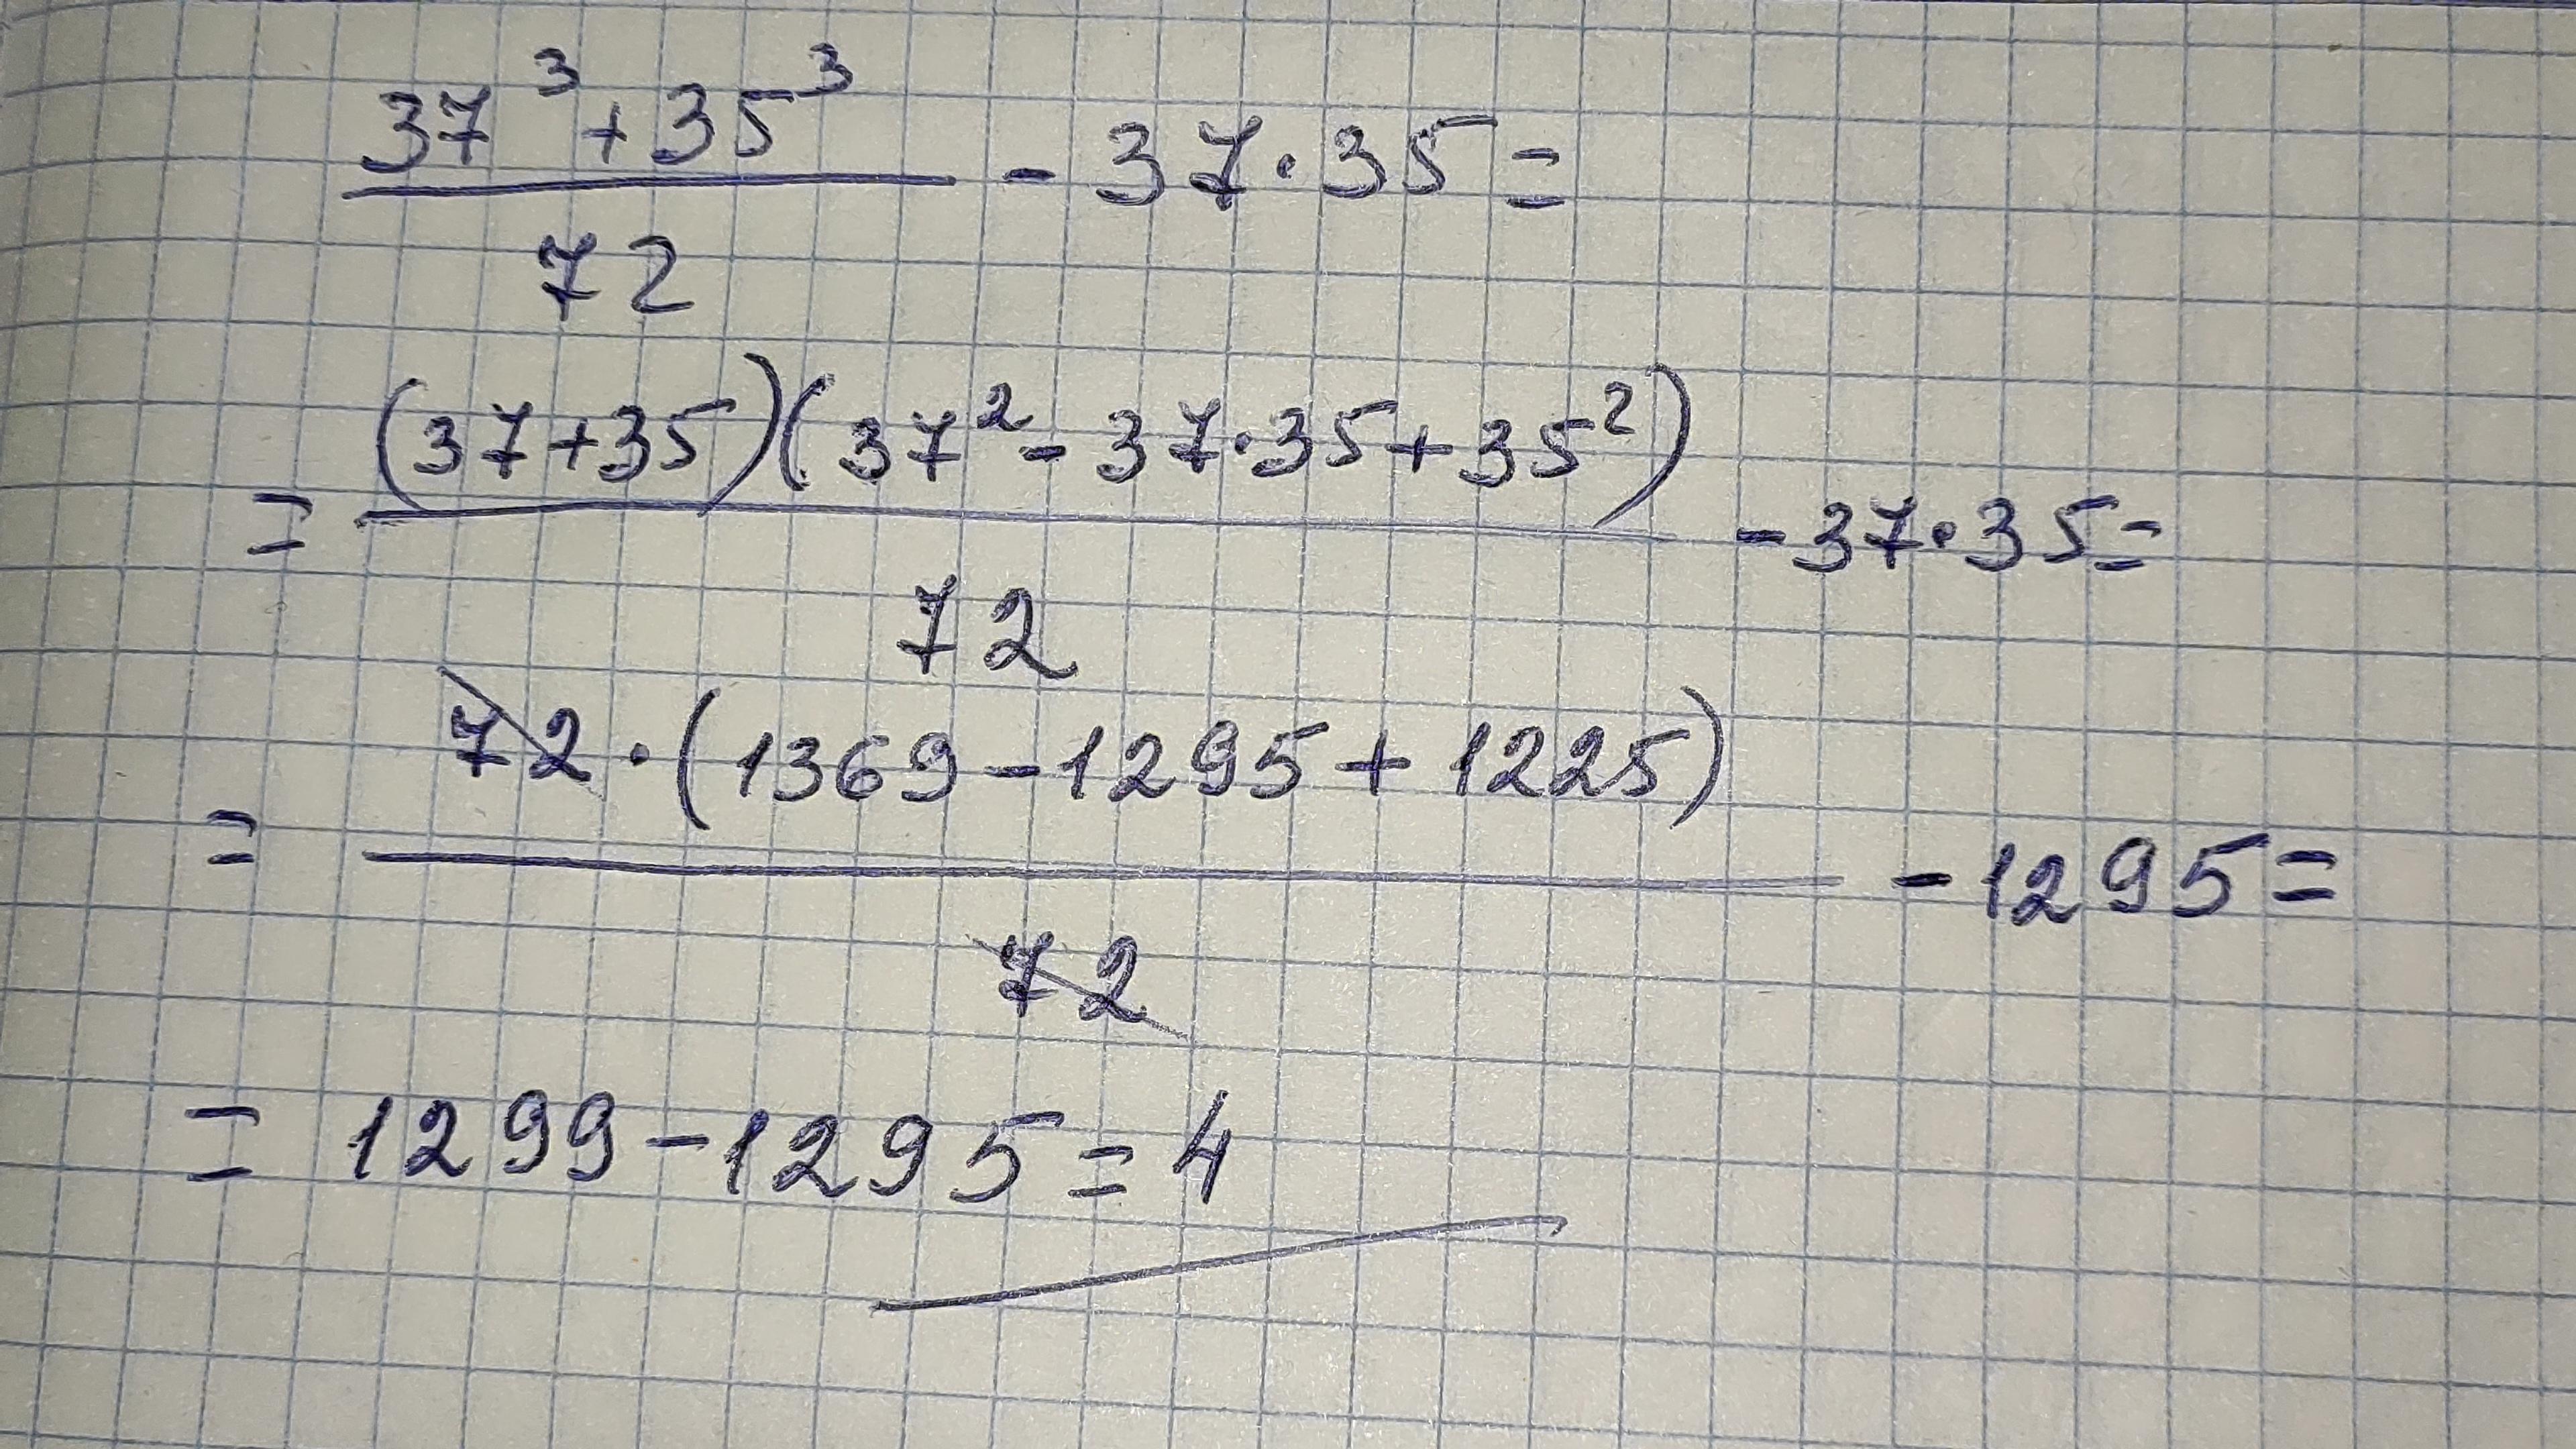 37³ + 35³
— 37·35 =
72
(37+35)(37² - 37·35 + 35²)
= — - 37·35 =
72
72 · (1369 - 1295 + 1225)
= — - 1295 =
72
= 1299 - 1295 = 4